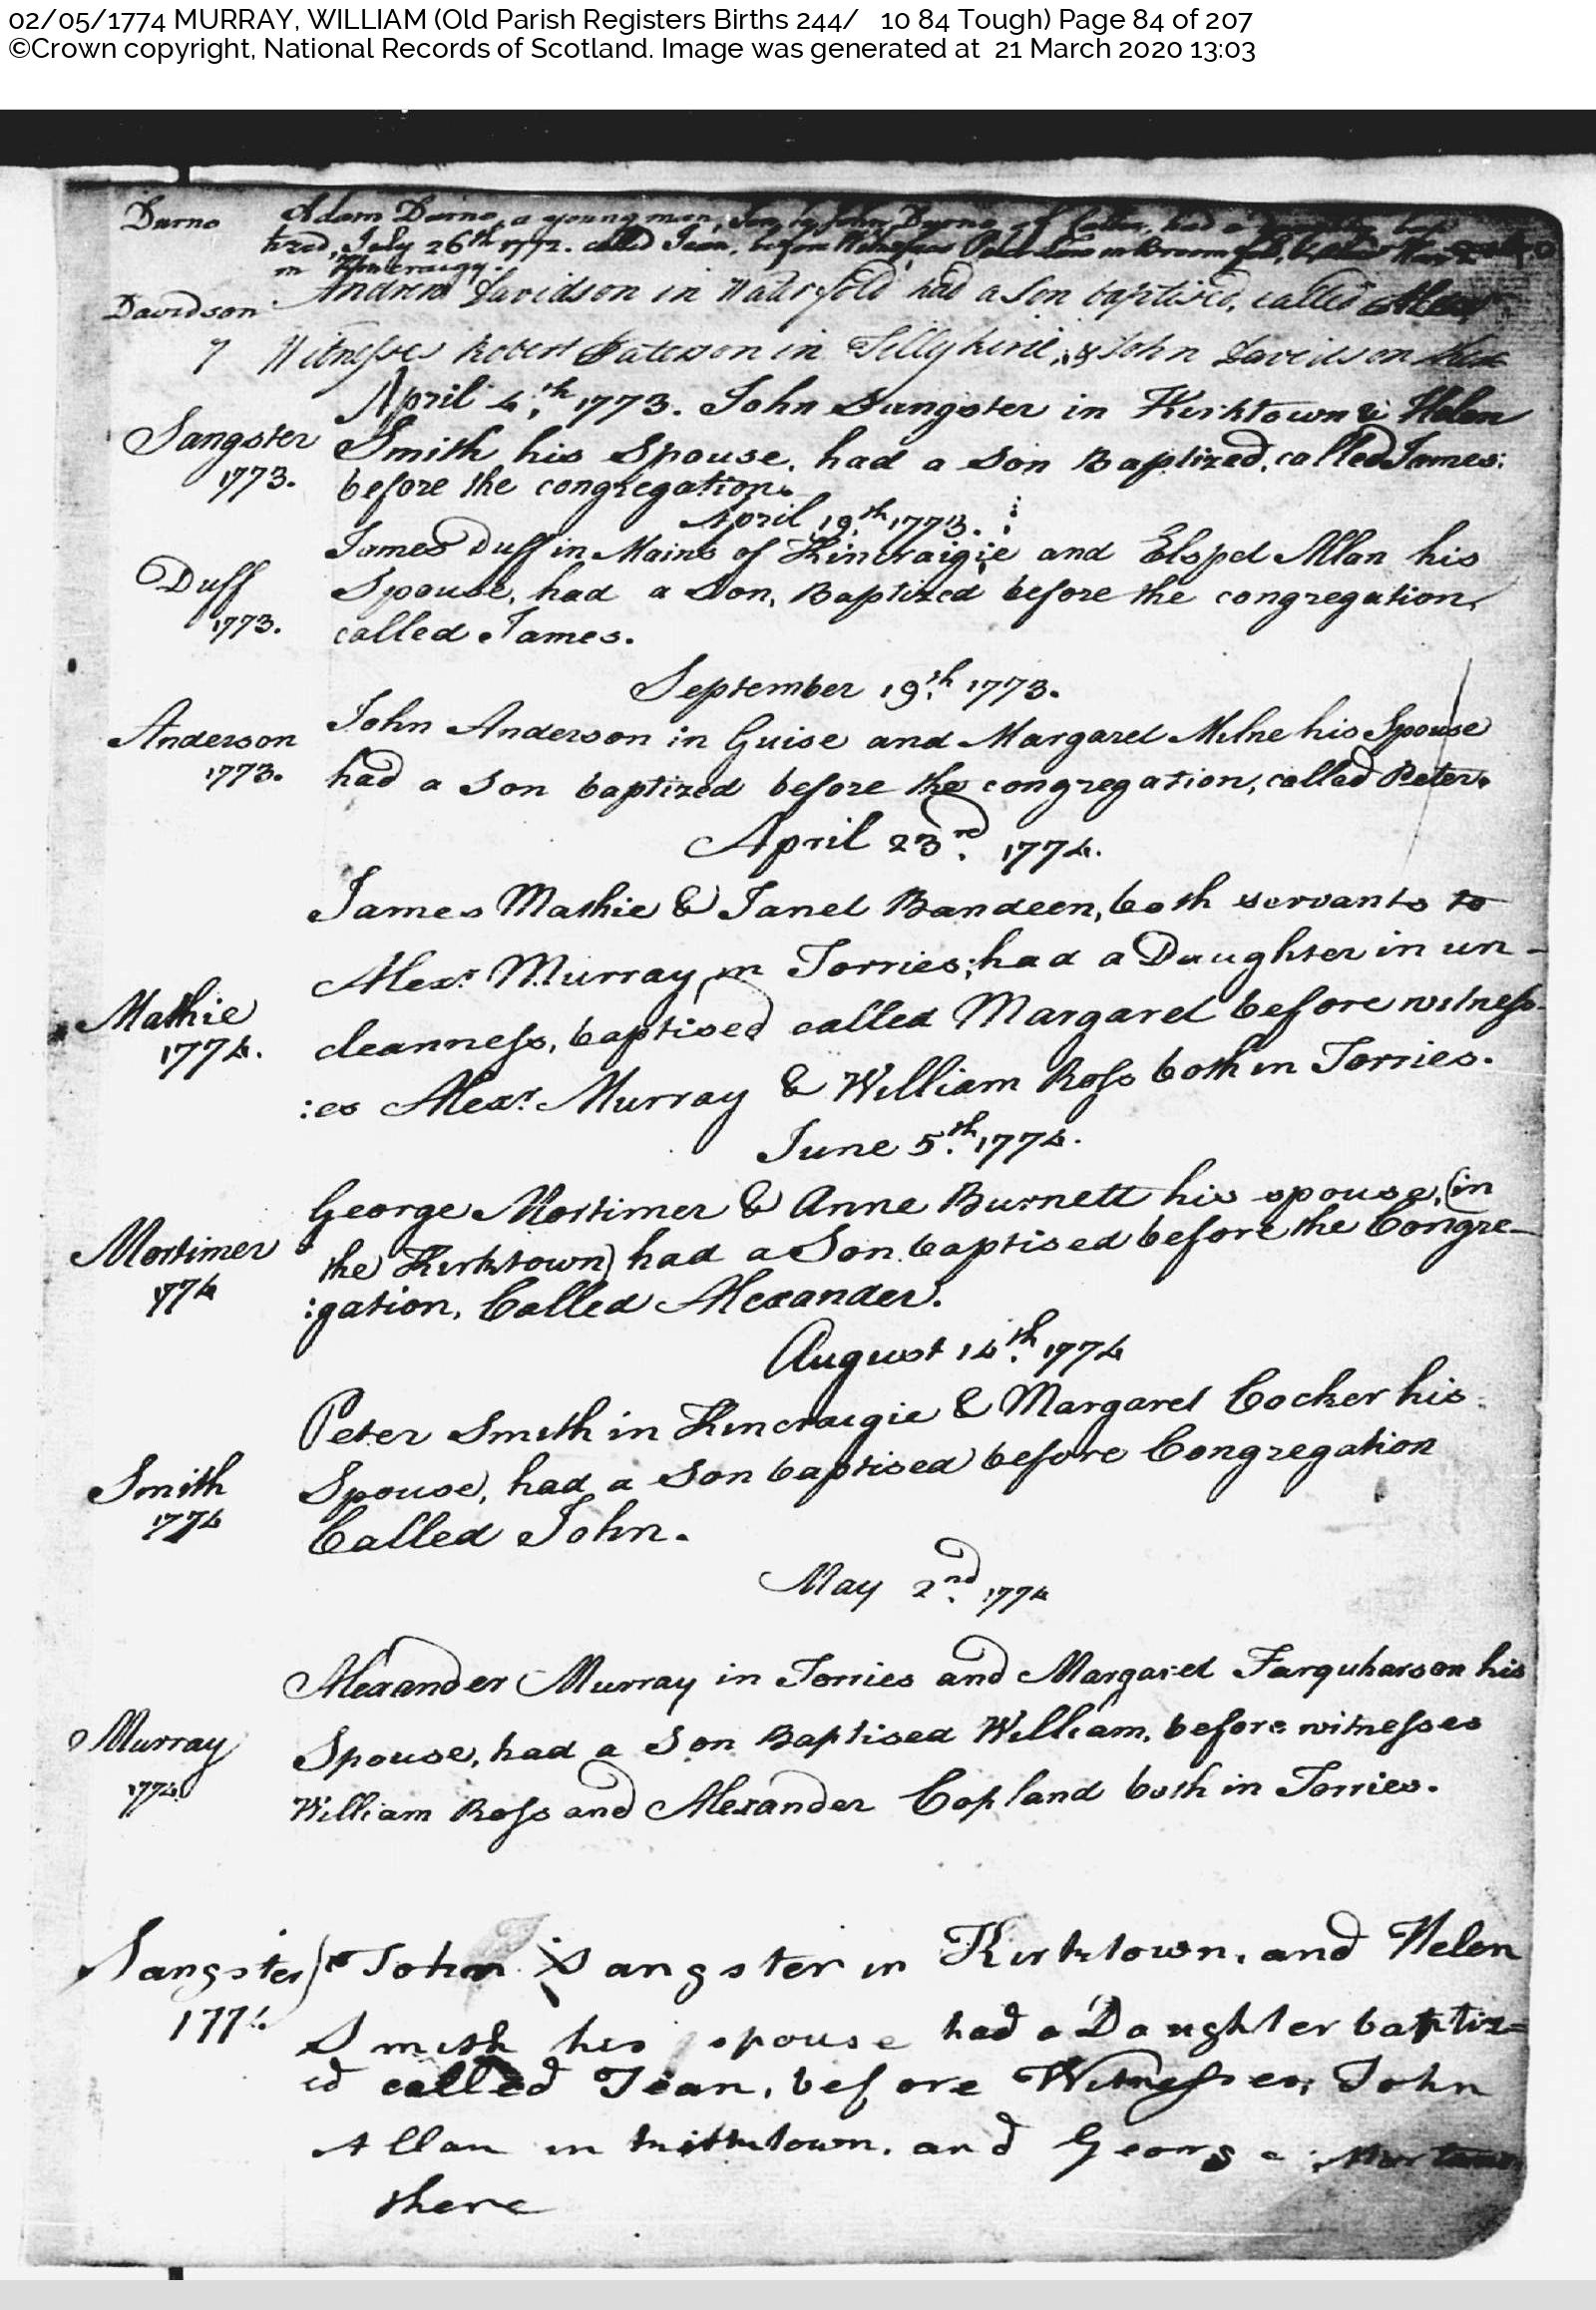 02/05/1774 MURRAY, WILLIAM (Old Parish Registers Births 244/ 10 84 Tough) Page 84 of 207
©Crown copyright, National Records of Scotland. Image was generated at 21 March 2020 13:03
Durno
Adam Durno, a young man, Son to John Durno of had a
tized, July 26th 1772. called Jean, before
in Kincraigy.
Davidson
Andrew Davidson in Waterfold had a Son baptised, called
Witnesses Robert Paterson in Tillykirie, & John Davidson
April 4th. 1773. John Sangster in Kirktown & Helen
Sangster
Smith his Spouse, had a Son Baptized, called James:
1773.
before the congregation.
April 19th. 1773.
James Duff in Mains of Kincraigie and Elspet Allan his
Duff
Spouse, had a Son, Baptized before the congregation,
1773.
called James.
September 19th. 1773.
Anderson
John Anderson in Guise and Margaret Milne his Spouse
1773.
had a Son baptized before the congregation, called Peter.
April 23rd. 1774.
James Mathie & Janet Bandeen, both servants to
Alexr. Murray in Torries; had a Daughter in un-
Mathie
cleanness, baptised called Margaret before witness-
1774.
:es Alexr. Murray & William Ross both in Torries.
June 5th. 1774.
George Mortimer & Anne Burnett his spouse, (in
Mortimer
the Kirktown) had a Son baptised before the Congre-
1774
:gation, Called Alexander.
August 14th. 1774
Peter Smith in Kincraigie & Margaret Cocker his
Smith
Spouse, had a Son baptised before Congregation
1774
Called John.
May 2nd. 1774
Alexander Murray in Torries and Margaret Farquharson his
Murray
Spouse, had a Son Baptised William, before witnesses
1774
William Ross and Alexander Copland both in Torries.
Sangster
John Sangster in Kirktown, and Helen
1774.
Smith his spouse had a Daughter baptiz=
ed called Jean, before Witnesses, John
Allan in Kirktown, and George
there